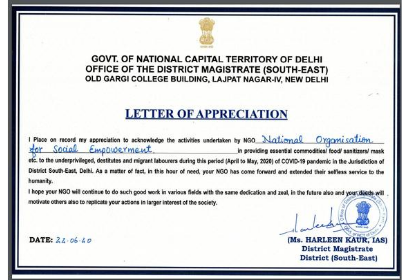 GOVT. OF NATIONAL CAPITAL TERRITORY OF DELHI
OFFICE OF THE DISTRICT MAGISTRATE (SOUTH-EAST)
OLD GARGI COLLEGE BUILDING, LAJPAT NAGAR-IV, NEW DELHI
LETTER OF APPRECIATION
I Place on record my appreciation to acknowledge the activities undertaken by NGO National Organisation
for Social Empowerment in providing essential commodities/ food/ sanitizers/ mask
etc. to the underprivileged, destitutes and migrant labourers during this period (April to May, 2020) of COVID-19 pandemic in the Jurisdiction of
District South-East, Delhi. As a matter of fact, in this hour of need, your NGO has come forward and extended their selfless service to the
humanity.
I hope your NGO will continue to do such good work in various fields with the same dedication and zeal, in the future also and your deeds will
motivate others also to replicate your actions in larger interest of the society.
DATE:
(Ms. HARLEEN KAUR, IAS)
District Magistrate
District (South-East)